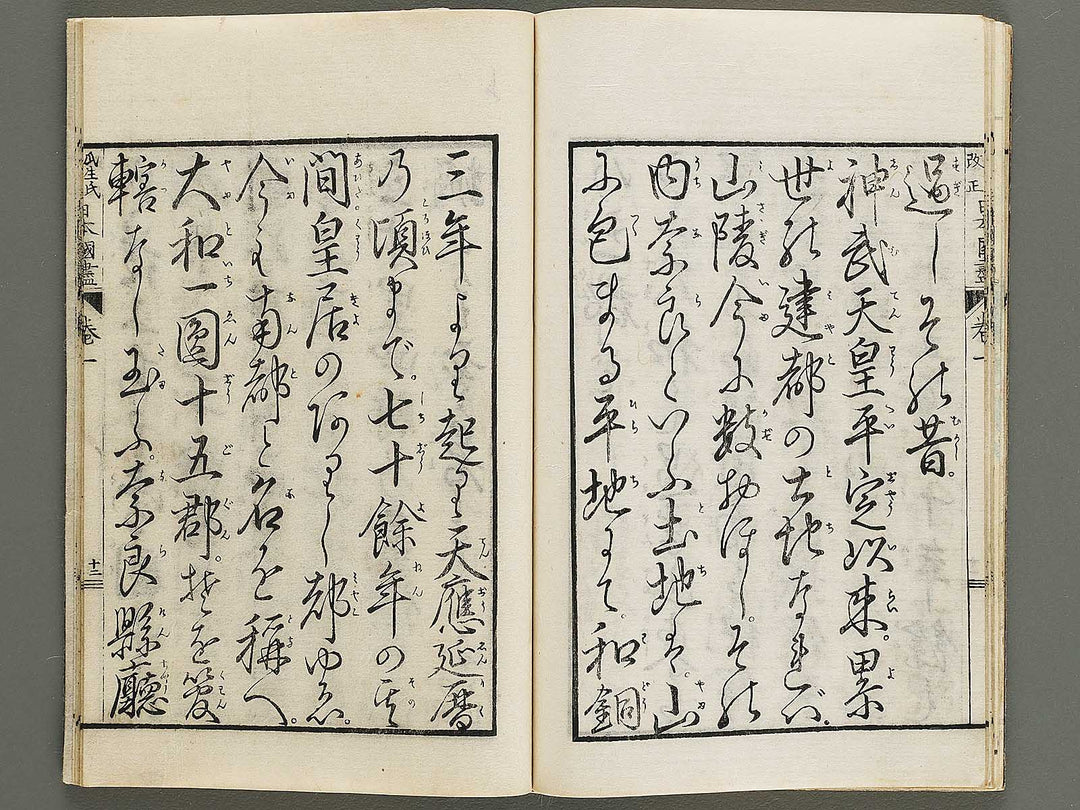 改正日本國盡 卷一
過しその昔。
神武天皇平定以来。累
世の建都の土地なれば。
山陵今に數おほし。その
内奈良といふ土地は。山
に包まる平地にて。和銅
三年より起り天應延暦
乃頃まで。七十餘年の其
間皇居のありし都ゆゑ。
今も南都と名を稱へ。
大和一圓十五郡。それを管
轄なし玉ふ。奈良縣廳
瓜生氏日本國盡 卷一 十二